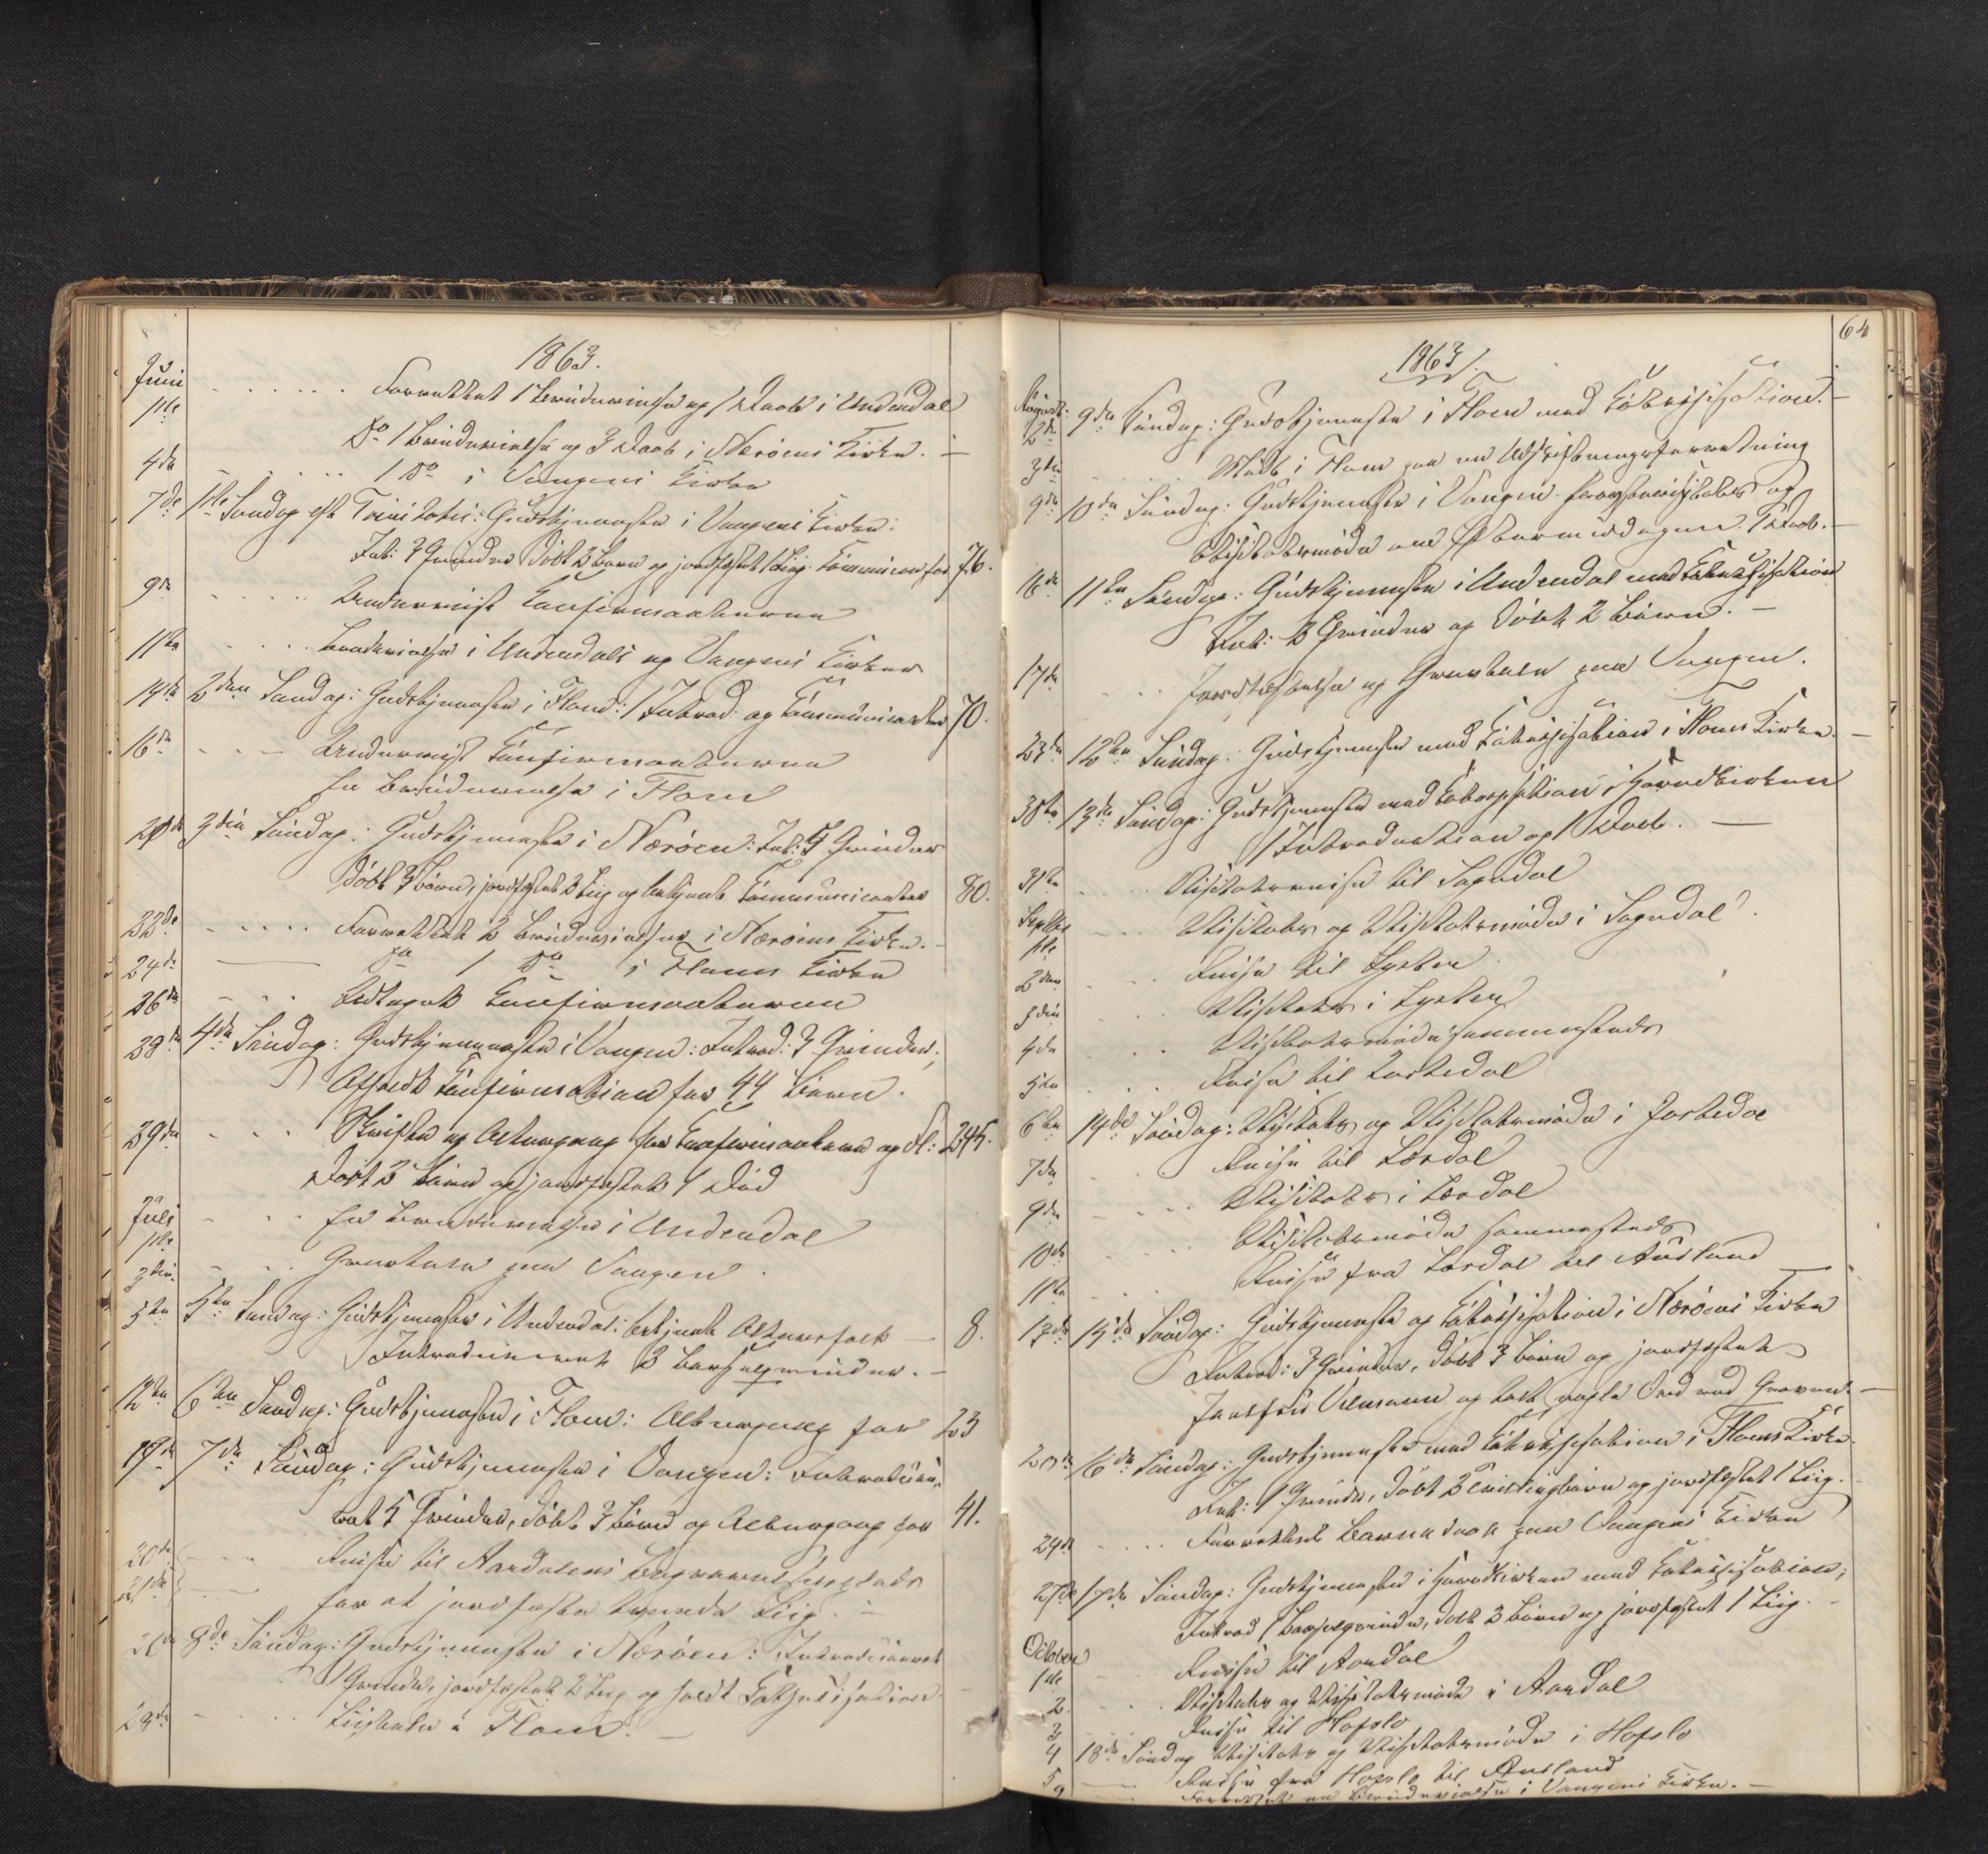 1863.
Juni
1ste Forrettet 1 Brudevielse og 1 Daab i Undredal
Do 1 Brudevielse og 3 Daab i Nærøens Kirke. –
4de 1 Do i Vangens Kirke
7de 1ste Søndag eft Trinitatis: Gudstjeneste i Vangens Kirke:
Int: 3 Qvinder Døbt 3 Børn og jordfæstet 1 Liig. Communion for 76.
9de Underviist Confirmanterne
11te Brudevielse i Undredals og Vangens Kirker
14de 2den Søndag: Gudstjeneste i Flaam: 1 Introd: og Communicanter 70.
16de Underviist Confirmanterne
En Brudevielse i Flaam
3die Søndag: Gudstjeneste i Nærøen: Int: Qvinder
Døbt 3 Børn, jordfæstet 3 Liig og betjent Communicanter 80.
Forrettet 2 Brudevielser i Nærøens Kirke. –
24de Do 1 Do i Flaams Kirke
26de Confirmanterne
28de 4de Søndag: Gudstjeneste i Vangen: Introd: 3 Qvinder;
Afholdt Confirmation for 44 Børn.
29de Skrifte og Altergang for Confirmanterne og Fl: 245.
Døbt 3 Børn og jordfæstet 1 Død
Juli
1ste En Brudevielse i Undredal
3die paa Vangen.
5te 5te Søndag: Gudstjeneste i Undredal: betjent Altersfolk – 8.
Introduceret 3 Barselqvinder. –
12te 6te Søndag: Gudstjeneste i Flaam: Altergang for 23
19de 7de Søndag: Gudstjeneste i Vangen: Introduce-
ret 5 Qvinder, Døbt 3 Børn og Altergang for 41.
20de Reise til Aardalens Begravelsesplads
21de for at jordfæste Liig. –
26de 8de Søndag: Gudstjeneste i Nærøen: Introduceret
1 Qvinde, jordfæstet 2 Liig og holdt Catechisation
i Flaam. –
64
1863.
August
2de 9de Søndag: Gudstjeneste i Flaam med Catechisation. –
3die Møde i Flaam paa en Udskiftningsforretning
9de 10de Søndag: Gudstjeneste i Vangen. og
Visitatsmøde om Eftermiddagen. Daab. –
16de 11te Søndag: Gudstjeneste i Undredal med Catechisation
Int: 3 Qvinder og Døbt 2 Børn. –
17de Jordfæstelse og paa Vangen.
23de 12te Søndag: Gudstjeneste med Catechisation i Flaams Kirke. –
30te 13de Søndag: Gudstjeneste med Catechisation i Hovedkirken
1 Introduction og 1 Daab. –
31te Visitatsreise til Sogndal
Septbr
1ste Visitats og Visitatsmøde i Sogndal.
2den Reise til Lyster
3die Visitats i Lyster
4de Visitatsmøde sammesteds
5te Reise til Jostedal
6te 14de Søndag: Visitats og Visitatsmøde i Jostedal
7de Reise til Lærdal
9de Visitats i Lærdal
10de Visitatsmøde sammesteds
11te Reise fra Lærdal til Aurland
13de 15de Søndag: Gudstjeneste og Catechisation i Nærøens Kirke
Introd: 3 Qvinder, Døbt 3 Børn og jordfæstet
Jomfru og talt nogle Ord ved Graven. –
20de 16de Søndag: Gudstjeneste med Catechisation i Flaams Kirke.
Int: 1 Qvinde, Døbt 2 Tvillingbørn og jordfæstet 1 Liig. –
24de Forrettet Barnedaab paa Vangens Kirke
27de 17de Søndag: Gudstjeneste i Hovedkirken med Catechisation;
Introd 1 Barselqvinde, Døbt 3 Børn og jordfæstet 1 Liig. –
October
1ste Reise til Aardal
2 Visitats og Visitatsmøde i Aardal
3 Reise til Hafslo
4 18de Søndag Visitats og Visitatsmøde i Hafslo
5 Reise fra Hafslo til Aurland
9 Forrettet en Brudevielse i Vangens Kirke. –